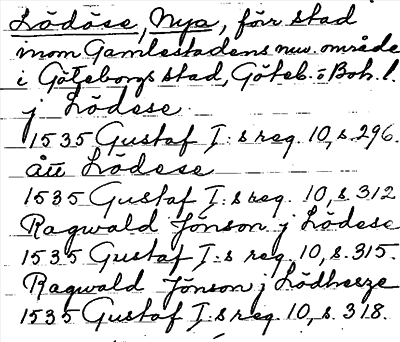 Lödöse, Nya, förr stad
inom Gamlestadens nuv. område
i Göteborgs stad, Göteb. o Boh. l.
j Lödese
1535 Gustaf I:s reg. 10, s. 296.
ått Lödese
1535 Gustaf I:s reg. 10, s. 312
Ragwald Jönson j Lödese
1535 Gustaf I:s reg. 10, s. 315.
Ragwald Jönson j Lödhesze
1535 Gustaf I:s reg. 10, s. 318.